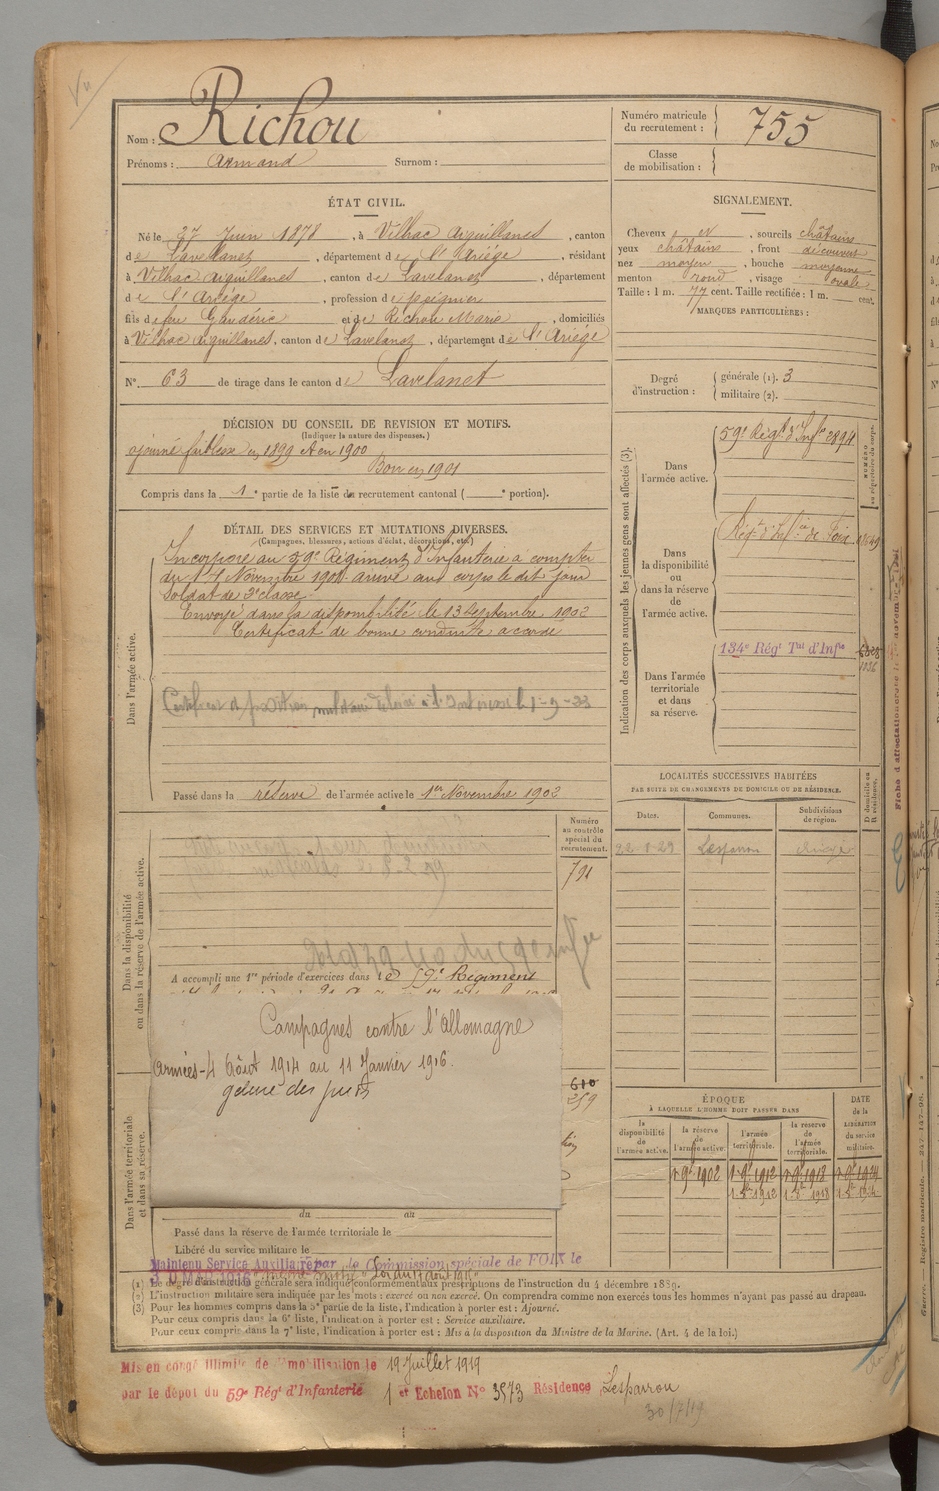 Nom : Richou
Prénoms : Armand Surnom :
Numéro matricule du recrutement : 755
Classe de mobilisation :
ÉTAT CIVIL.
Né le 27 Juin 1878, à Vilhac Aiguillanes, canton
de Lavelanet, département de l'Ariége, résidant
à Vilhac Aiguillanes, canton de Lavelanet, département
de l'Ariége, profession de peignier
fils de feu Gaudéric et de Richou Marie, domiciliés
à Vilhac Aiguillanes, canton de Lavelanet, département de l'Ariége
N° 63 de tirage dans le canton de Lavelanet
SIGNALEMENT.
Cheveux et sourcils châtains
yeux châtains, front découvert
nez moyen, bouche moyenne
menton rond, visage ovale
Taille : 1 m. 77 cent. Taille rectifiée : 1 m. cent.
MARQUES PARTICULIÈRES :
Degré d'instruction : générale (1). 3
militaire (2).
DÉCISION DU CONSEIL DE REVISION ET MOTIFS.
(Indiquer la nature des dispenses.)
ajourné faiblesse en 1899 et en 1900
Bon en 1901
Compris dans la 1e partie de la liste de recrutement cantonal ( e portion).
DÉTAIL DES SERVICES ET MUTATIONS DIVERSES.
(Campagnes, blessures, actions d'éclat, décorations, etc.)
Dans l'armée active.
Incorporé au 59e Régiment d'Infanterie à compter
du Novembre 1901 arrivé au corps le dit jour
Soldat de 2e classe.
Envoyé dans la disponibilité le 13 Septembre 1902
Certificat de bonne conduite accordé
Passé dans la réserve de l'armée active le 1er Novembre 1902
Indication des corps auxquels les jeunes gens sont affectés (3).
NUMÉRO au répertoire du corps.
Dans l'armée active.
59e Régt d'Infie 2894
Dans la disponibilité ou dans la réserve de l'armée active.
Régt d'Infie de Foix
Dans l'armée territoriale et dans sa réserve.
134e Régt Tal d'Infie
1036
LOCALITÉS SUCCESSIVES HABITÉES
PAR SUITE DE CHANGEMENTS DE DOMICILE OU DE RÉSIDENCE.
Dates. Communes. Subdivisions de région. D domicile ou R résidence.
Lesparrou Ariège
Dans la disponibilité ou dans la réserve de l'armée active.
Numéro au contrôle spécial du recrutement.
791
A accompli une 1re période d'exercices dans le 59e Régiment
Campagnes contre l'Allemagne
Armées - 4 Août 1914 au 11 Janvier 1916.
610
259
Dans l'armée territoriale et dans sa réserve.
du au
Passé dans la réserve de l'armée territoriale le
Libéré du service militaire le
Maintenu Service Auxiliaire par la Commission spéciale de FOIX le
ÉPOQUE
À LAQUELLE L'HOMME DOIT PASSER DANS
la disponibilité de l'armée active.
la réserve de l'armée active.
l'armée territoriale.
la réserve de l'armée territoriale.
DATE de la LIBÉRATION du service militaire.
(1) Le degré d'instruction générale sera indiqué conformément aux prescriptions de l'instruction du 4 décembre 1889.
(2) L'instruction militaire sera indiquée par les mots : exercé ou non exercé. On comprendra comme non exercés tous les hommes n'ayant pas passé au drapeau.
(3) Pour les hommes compris dans la 5e partie de la liste, l'indication à porter est : Ajourné.
Pour ceux compris dans la 6e liste, l'indication à porter est : Service auxiliaire.
Pour ceux compris dans la 7e liste, l'indication à porter est : Mis à la disposition du Ministre de la Marine. (Art. 4 de la loi.)
Mis en congé illimité de démobilisation le 19 Juillet 1919
par le dépôt du 59e Régt d'Infanterie 1er Echelon N° 3573 Résidence Lesparrou
30/7/19